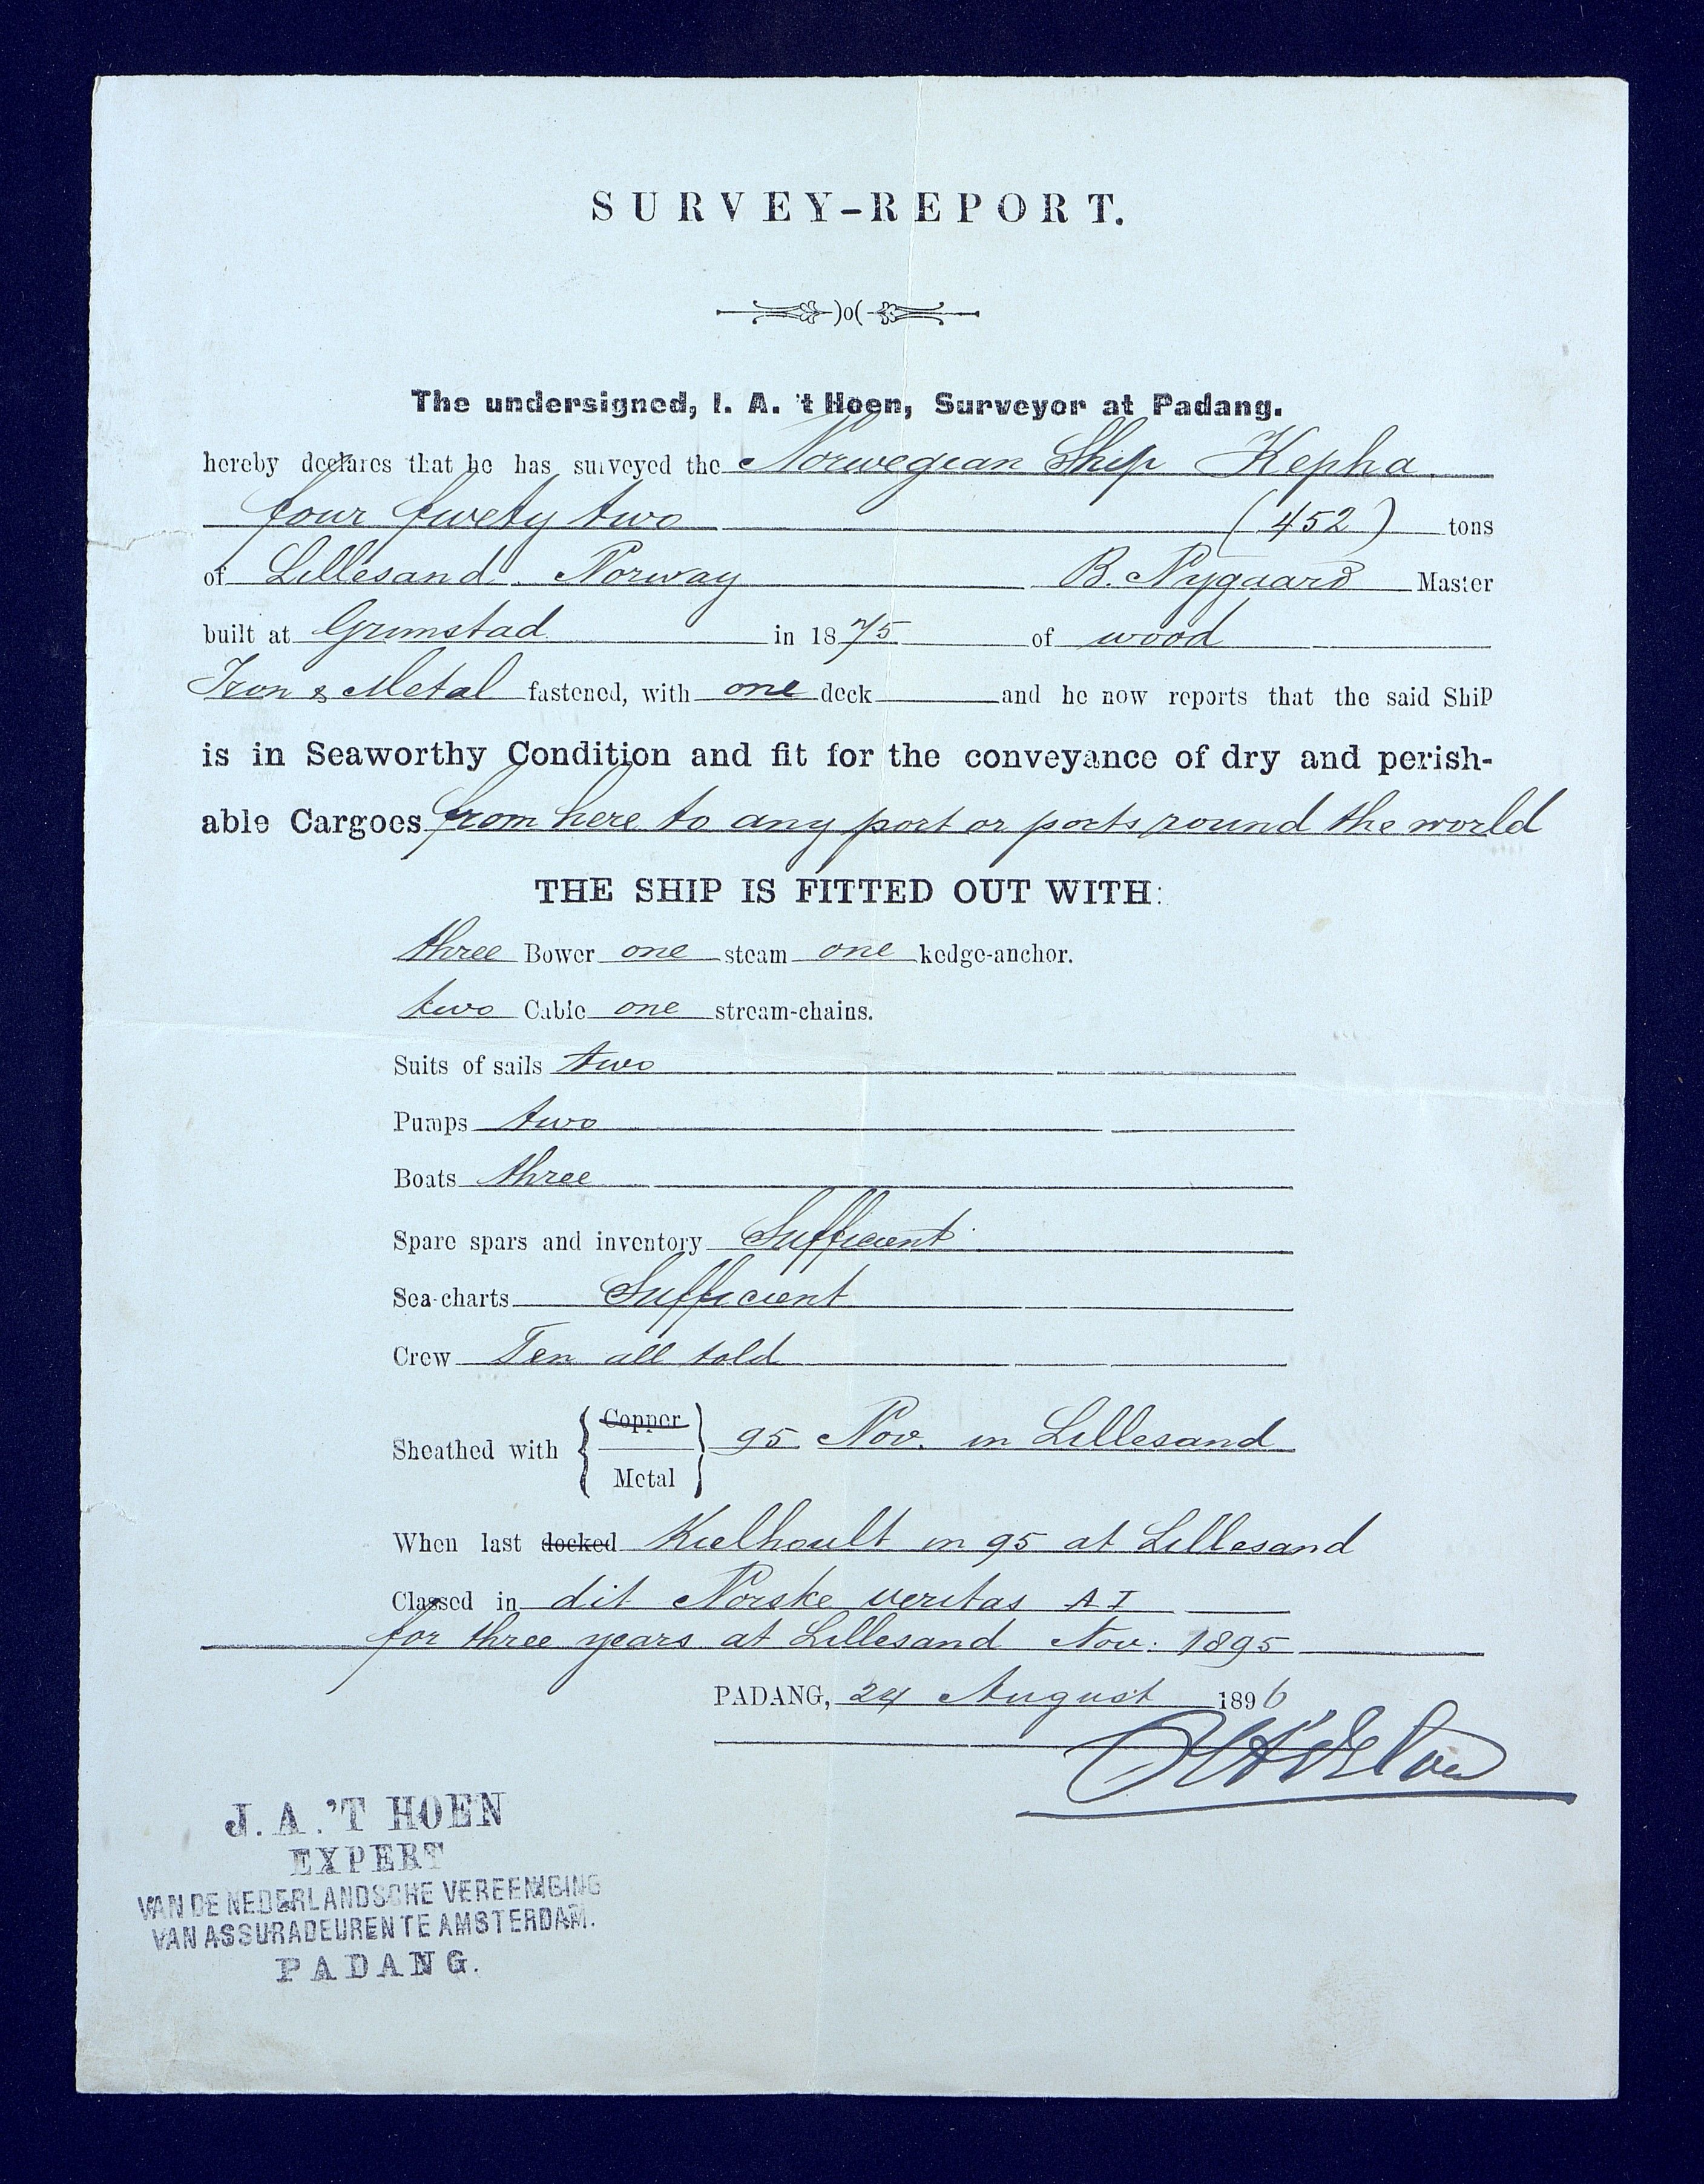 SURVEY-REPORT.
)o(
The undersigned, I. A. 't Hoen, Surveyor at Padang.
hereby declares that he has surveyed the Norwegian Ship Kepha
four fwety two (452) tons
of Lillesand Norway B. Nygaard Master
built at Grimstad in 1875 of wood
Iron & Metal fastened, with one deck and he now reports that the said Ship
is in Seaworthy Condition and fit for the conveyance of dry and perish-
able Cargoes from here to any port or ports round the world
THE SHIP IS FITTED OUT WITH:
three Bower one steam one kedge-anchor.
two Cable one stream-chains.
Suits of sails two
Pumps two
Boats three
Spare spars and inventory Sufficient
Sea-charts Sufficient
Crew Ten all told
Copper
Sheathed with 95 Nov. in Lillesand
Metal
When last docked Kielhoult in 95 at Lillesand
Classed in dit Norske veritas A I
for three years at Lillesand Nov. 1895
PADANG, 24 August 1896
J. A. 'T HOEN
EXPERT
VAN DE NEDERLANDSCHE VEREENIGING
VAN ASSURADEUREN TE AMSTERDAM.
PADANG.